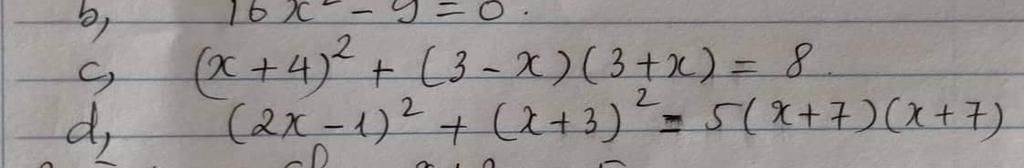 b, 16x² - 9 = 0.
c, (x+4)² + (3-x)(3+x) = 8.
d, (2x-1)² + (x+3)² = 5(x+7)(x+7)